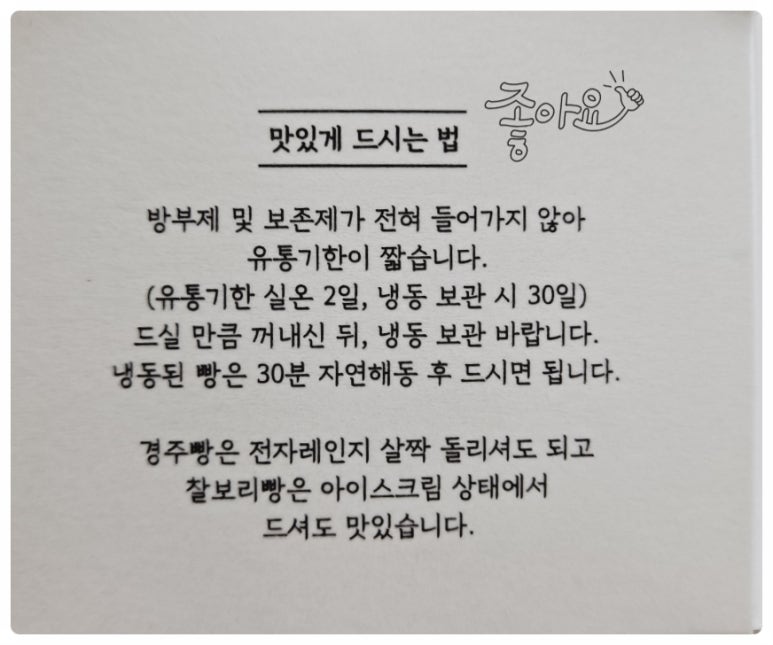 좋아요
맛있게 드시는 법
방부제 및 보존제가 전혀 들어가지 않아
유통기한이 짧습니다.
(유통기한 실온 2일, 냉동 보관 시 30일)
드실 만큼 꺼내신 뒤, 냉동 보관 바랍니다.
냉동된 빵은 30분 자연해동 후 드시면 됩니다.
경주빵은 전자레인지 살짝 돌리셔도 되고
찰보리빵은 아이스크림 상태에서
드셔도 맛있습니다.